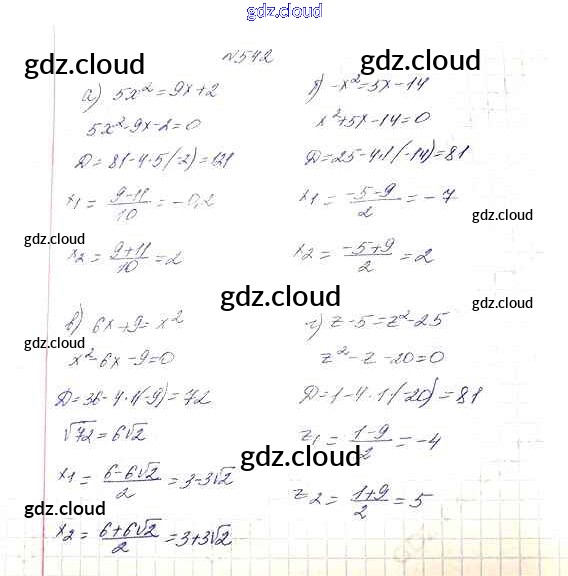 gdz.cloud
N542
gdz.cloud gdz.cloud
а) 5x² = 9x + 2
5x² - 9x - 2 = 0
D = 81 - 4·5(-2) = 121
x₁ = (9-11)/10 = -0,2
gdz.cloud
x₂ = (9+11)/10 = 2
gdz.cloud
б) -x² = 5x - 14
x² + 5x - 14 = 0
D = 25 - 4·1·(-14) = 81
x₁ = (-5-9)/2 = -7
gdz.cloud
x₂ = (-5+9)/2 = 2
gdz.cloud
gdz.cloud
в) 6x + 9 = x²
gdz.cloud
x² - 6x - 9 = 0
D = 36 - 4·1(-9) = 72
√72 = 6√2
x₁ = (6-6√2)/2 = 3-3√2
gdz.cloud
x₂ = (6+6√2)/2 = 3+3√2
gdz.cloud
г) z - 5 = z² - 25
z² - z - 20 = 0
D = 1 - 4·1·(-20) = 81
z₁ = (1-9)/2 = -4
gdz.cloud
z₂ = (1+9)/2 = 5